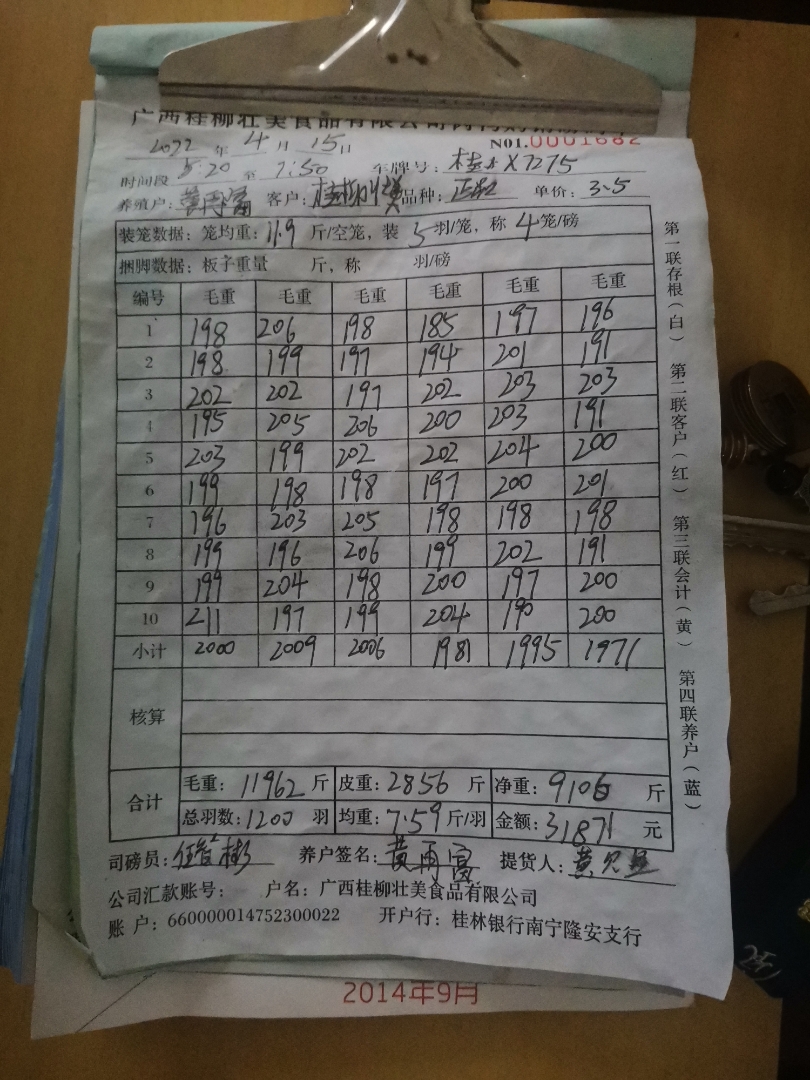 广西桂柳壮美食品有限公司
N01.0001682
2022 年 4 月 15日
时间段 5:20 至 7:50 车牌号: X7275
养殖户: 黄再富 客户: 桂柳壮美 品种: 单价: 3.5
装笼数据: 笼均重: 11.9 斤/空笼, 装 5 羽/笼, 称 4 笼/磅
捆脚数据: 板子重量 斤, 称 羽/磅
编号 毛重 毛重 毛重 毛重 毛重 毛重
1 198 206 198 185 197 196
2 198 199 197 194 201 191
3 202 202 197 202 203 203
4 195 205 206 200 203 191
5 203 199 202 202 204 200
6 199 198 198 197 200 201
7 196 203 205 198 198 198
8 199 196 206 199 202 191
9 199 204 198 200 197 200
10 211 197 199 204 190 200
小计 2000 2009 2006 1981 1995 1971
核算
合计 毛重: 11962 斤 皮重: 2856 斤 净重: 9106 斤
总羽数: 1200 羽 均重: 7.59 斤/羽 金额: 31871 元
司磅员: 养户签名: 黄再富 提货人:
公司汇款账号: 户名: 广西桂柳壮美食品有限公司
账 户: 660000014752300022 开户行: 桂林银行南宁隆安支行
第一联存根(白) 第二联客户(红) 第三联会计(黄) 第四联养户(蓝)
2014年9月